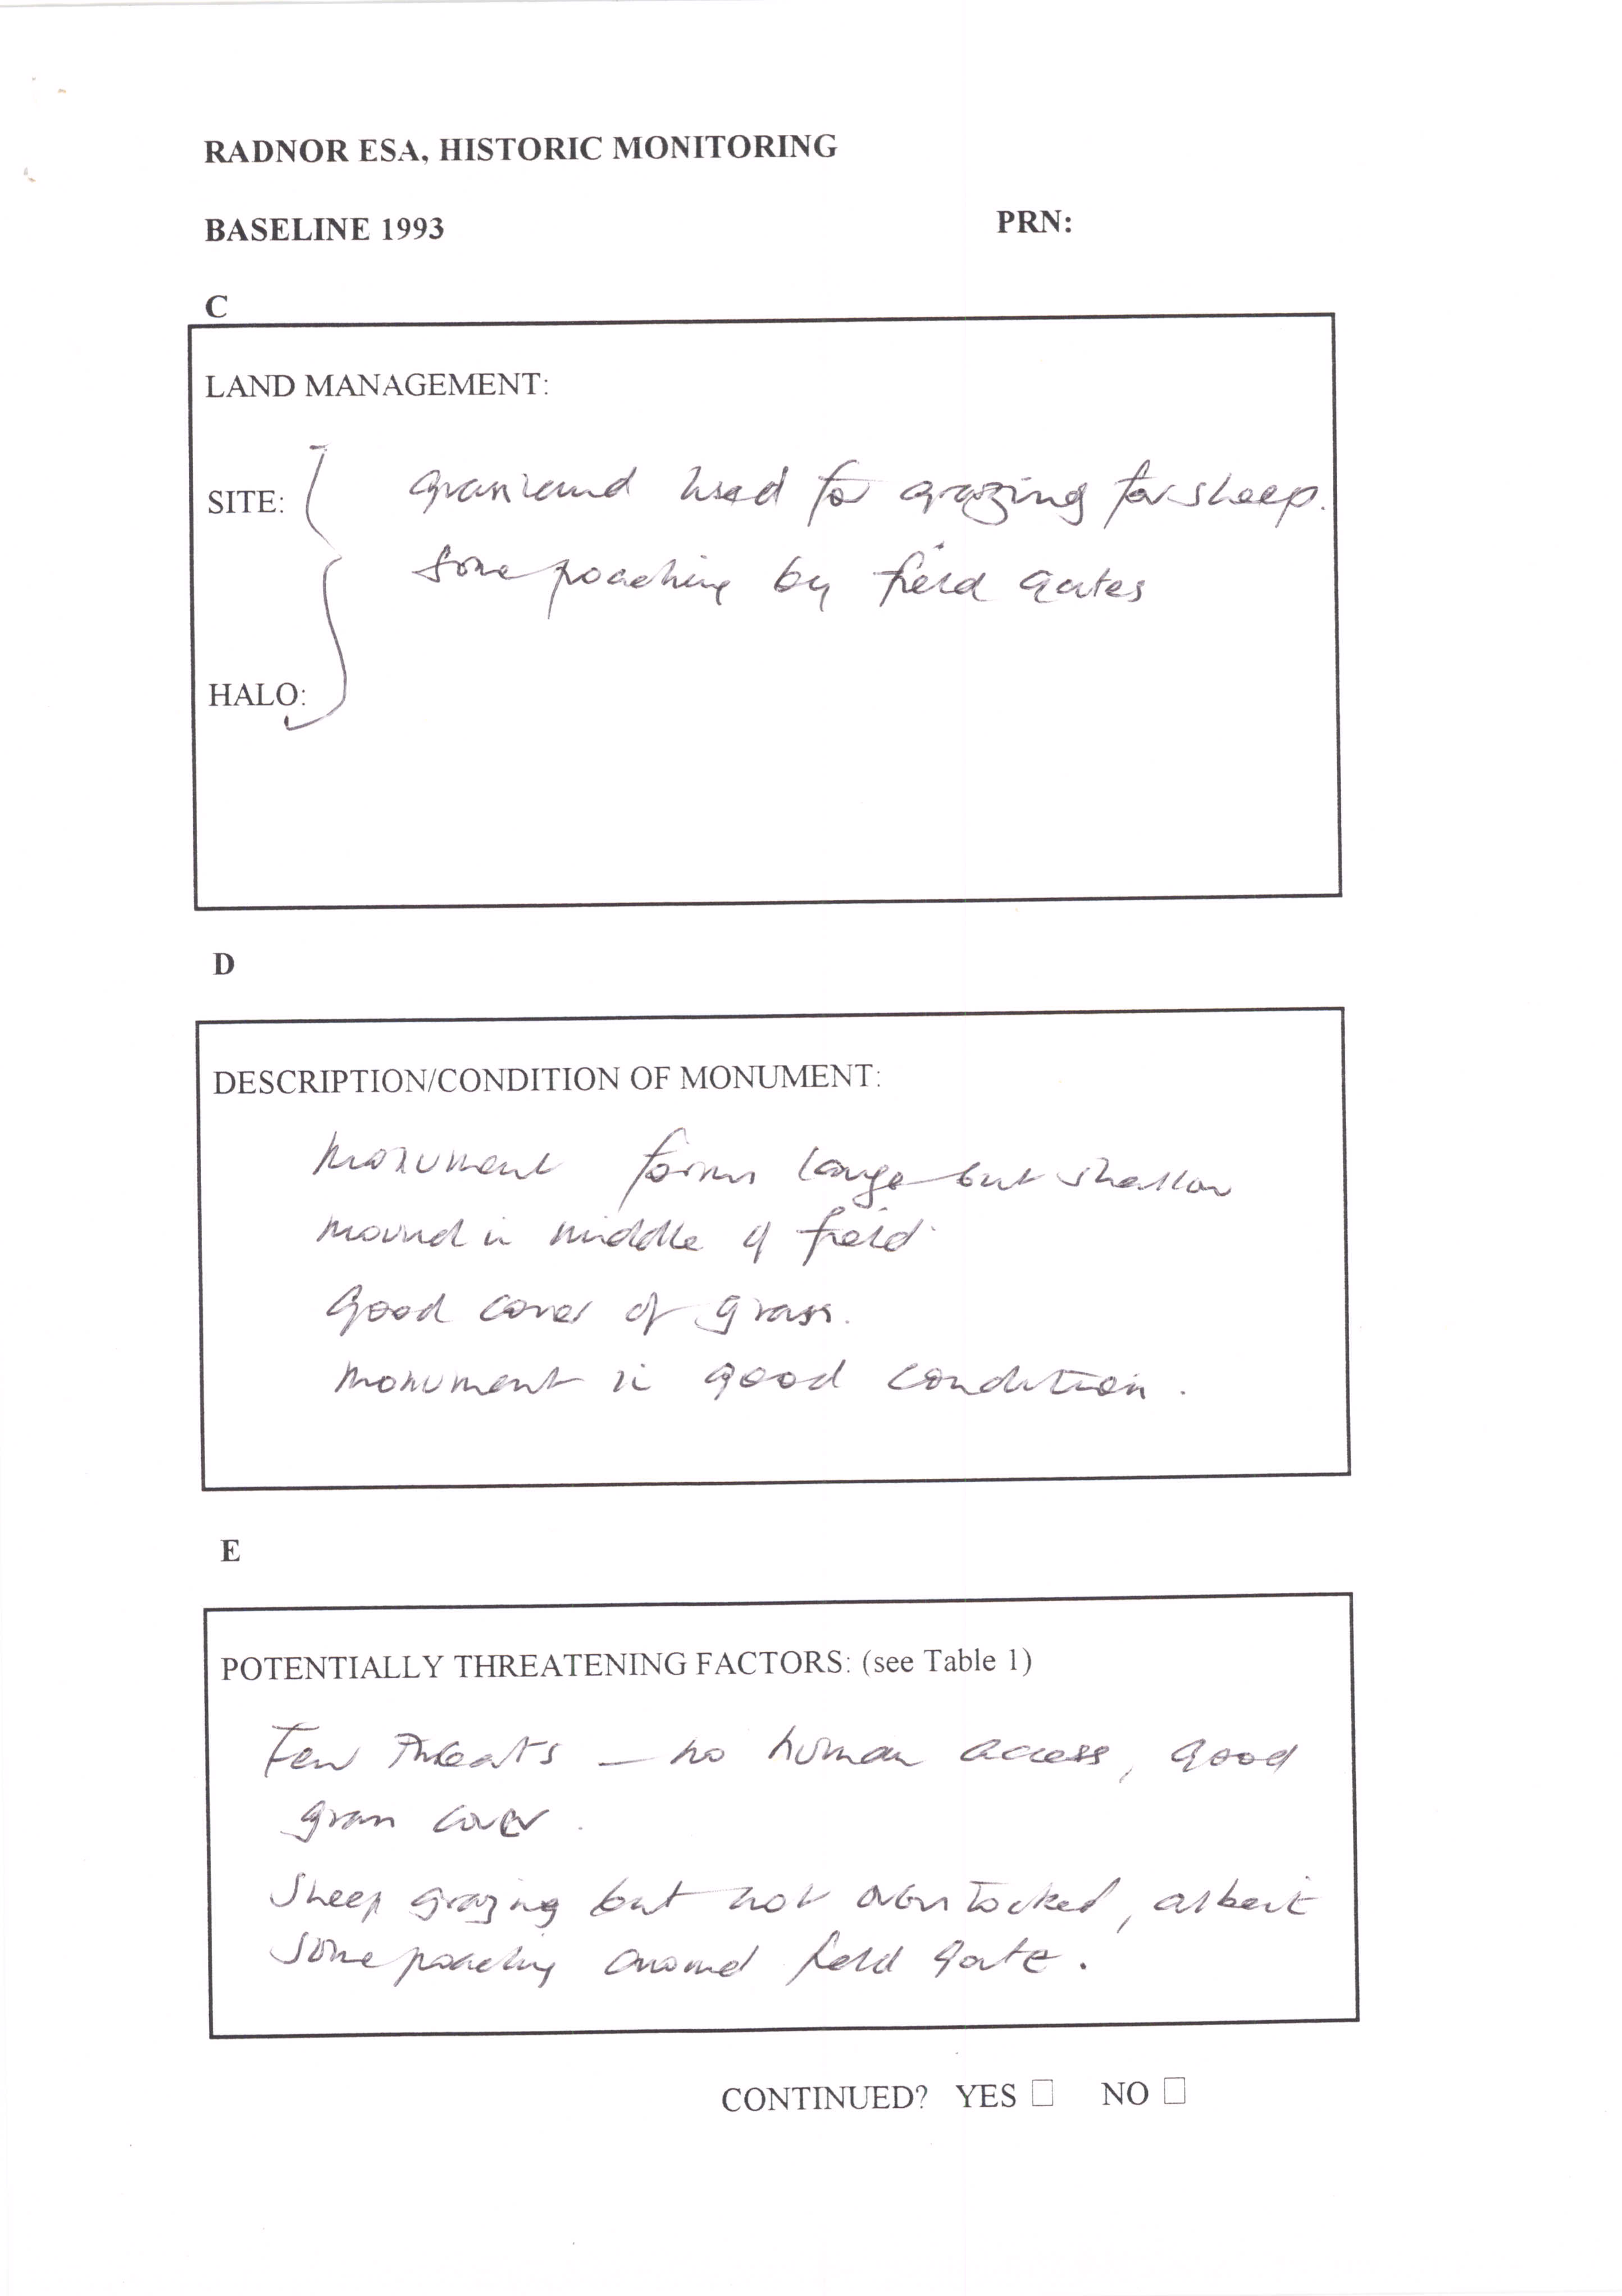 RADNOR ESA, HISTORIC MONITORING
BASELINE 1993 PRN:
C
LAND MANAGEMENT:
SITE: Grassland used for grazing for sheep.
Some poaching by field gates
HALO:
D
DESCRIPTION/CONDITION OF MONUMENT:
Monument forms large but shallow
mound in middle of field
Good cover of grass.
Monument in good condition.
E
POTENTIALLY THREATENING FACTORS: (see Table 1)
Few threats – no human access, good
grass cover.
Sheep grazing but not overstocked, albeit
some poaching around field gate.
CONTINUED? YES ☐ NO ☐